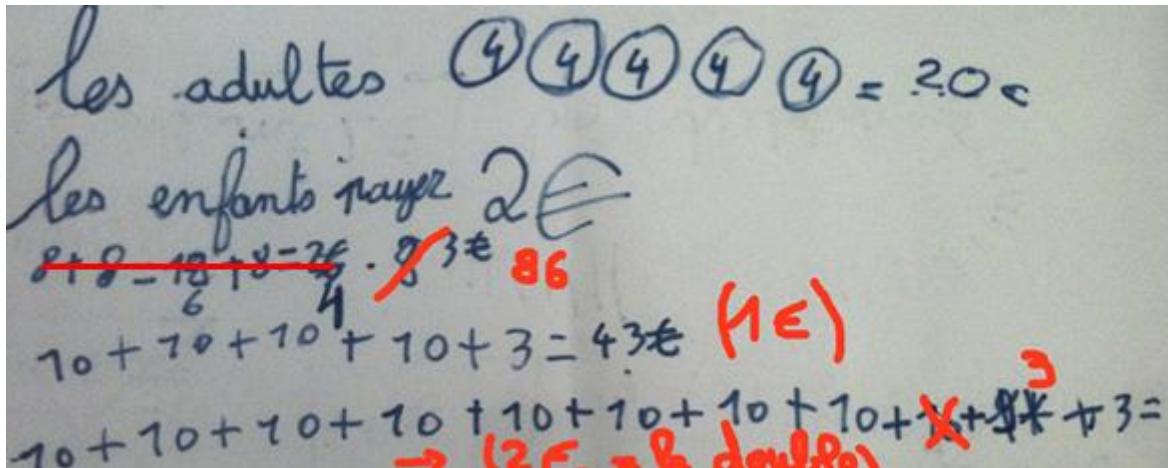 les adultes 4 4 4 4 4 = 20 €
les enfants payer 2€
8+8=18+8= . 3€ 86
6 4
10+10+10+10+3=43€ (1€)
3
10+10+10+10+10+10+10+10+ + +3=
→ (2€ = le double)